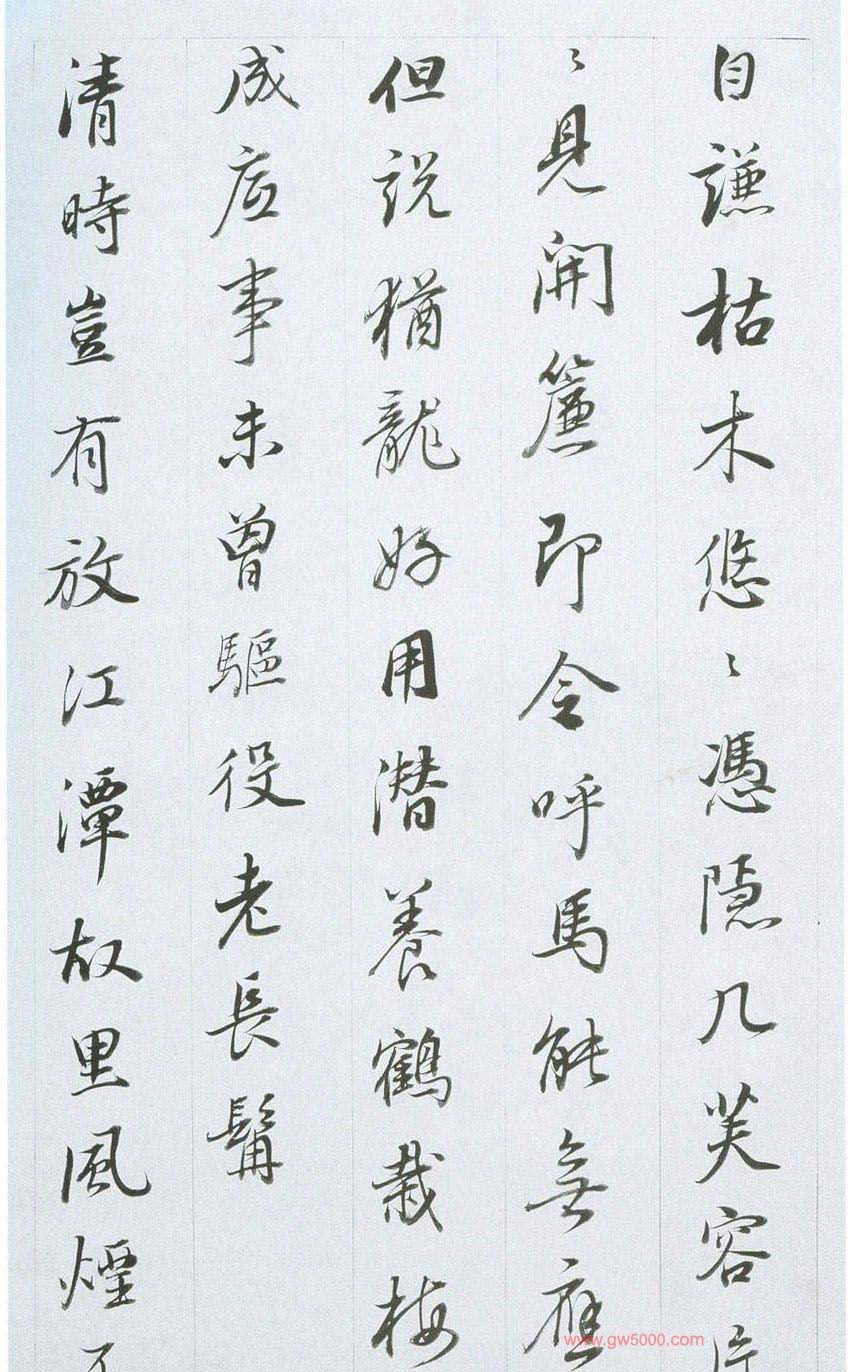 自謙枯木悠〻憑隱几芙容
〻見開簾即令呼馬能無應
但說猶龍好用潛養鶴栽梅
成虛事未曾驅役老長髯
清時豈有放江潭故里風煙
www.gw5000.com